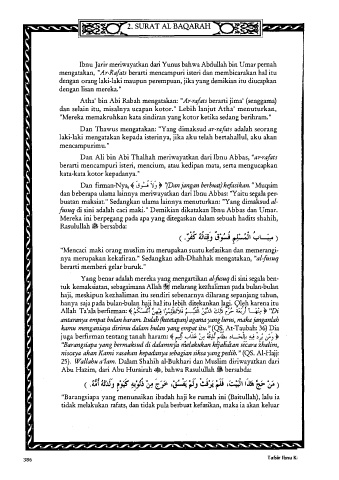 2. SURAT AL BAQARAH
Ibnu Jarir meriwayatkan dari Yunus bahwa Abdullah bin Umar pernah
mengatakan, "Ar-Rafats berarti mencampuri isteri dan membicarakan hal itu
dengan orang laki-laki maupun perempuan, jika yang demikian itu diucapkan
dengan lisan mereka."
Atha' bin Abi Rabah mengatakan: "Ar-rafats berarti jima' (senggama)
dan selain itu, misalnya ucapan kotor." Lebih lanjut Atha' menuturkan,
"Mereka memakruhkan kata sindiran yang kotor ketika sedang berihram."
Dan Thawus mengatakan: "Yang dimaksud ar-rafats adalah seorang
laki-laki mengatakan kepada isterinya, jika aku telah bertahallul, aku akan
mencampurimu."
Dan Ali bin Abi Thalhah meriwayatkan dari Ibnu Abbas, "ar-rafats
berarti mencampuri isteri, mencium, atau kedipan mata, serta mengucapkan
kata-kata kotor kepadanya."
Dan firman-Nya, ﴿ وَلاَ فُسُوقَ ﴾ "Dan jangan berbuat) kefasikan." Muqsim
dan beberapa ulama lainnya meriwayatkan dari Ibnu Abbas: "Yaitu segala per-
buatan maksiat." Sedangkan ulama lainnya menuturkan: "Yang dimaksud al-
fusuq di sini adalah caci maki." Demikian dikatakan Ibnu Abbas dan Umar.
Mereka ini berpegang pada apa yang ditegaskan dalam sebuah hadits shahih,
Rasulullah ﷺ bersabda:
( سِبَابُ الْمُسْلِمِ فُسُوْقٌ وَقِتَالُهُ كُفْرٌ. )
"Mencaci maki orang muslim itu merupakan suatu kefasikan dan memerangi-
nya merupakan kekafiran." Sedangkan adh-Dhahhak mengatakan, "al-fusuq
berarti memberi gelar buruk."
Yang benar adalah mereka yang mengartikan al-fusuq di sini segala ben-
tuk kemaksiatan, sebagaimana Allah ﷻ melarang kezhaliman pada bulan-bulan
haji, meskipun kezhaliman itu sendiri sebenarnya dilarang sepanjang tahun,
hanya saja pada bulan-bulan haji hal itu lebih ditekankan lagi. Oleh karena itu
Allah Ta'ala berfirman: ﴿ مِنْهَا أَرْبَعَةٌ حُرُمٌ ذَلِكَ الدِّينُ الْقَيِّمُ فَلاَ تَظْلِمُوا فِيهِنَّ أَنْفُسَكُمْ ﴾ "Di
antaranya empat bulan haram. Itulah (ketetapan) agama yang lurus, maka janganlah
kamu menganiaya dirimu dalam bulan yang empat itu." (QS. At-Taubah: 36) Dia
juga berfirman tentang tanah haram: ﴿ وَمَنْ يُرِدْ فِيهِ بِإِلْحَادٍ بِظُلْمٍ نُذِقْهُ مِنْ عَذَابٍ أَلِيمٍ ﴾
"Barangsiapa yang bermaksud di dalamnya melakukan kejahatan secara zhalim,
niscaya akan Kami rasakan kepadanya sebagian siksa yang pedih." (QS. Al-Hajj:
25). Wallahu a'lam. Dalam Shahih al-Bukhari dan Muslim diriwayatkan dari
Abu Hazim, dari Abu Hurairah ؓ, bahwa Rasulullah ﷺ bersabda:
( مَنْ حَجَّ هَذَا الْبَيْتَ، فَلَمْ يَرْفُثْ وَلَمْ يَفْسُقْ، خَرَجَ مِنْ ذُنُوْبِهِ كَيَوْمٍ وَلَدَتْهُ أُمُّهُ. )
"Barangsiapa yang menunaikan ibadah haji ke rumah ini (Baitullah), lalu ia
tidak melakukan rafats, dan tidak pula berbuat kefasikan, maka ia akan keluar
386
Tafsir Ibnu K.